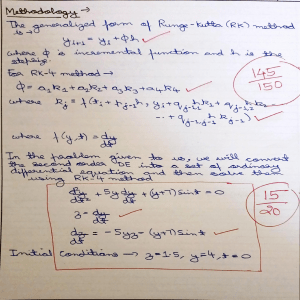 Methodology →
The generalized form of Runge-Kutta (RK) method
is →
yi+1 = yi + Φh
where Φ is incremental function and h is the
stepsize.
For RK-4 method →
Φ = a1k1 + a2k2 + a3k3 + a4k4
145/150
where
where f(y,t) = dy/dt
In the problem given to us, we will convert
the second order DE into a set of ordinary
differential equation and then solve them
using RK-4 method
d²y/dt² + 5y dy/dt + (y+7) sint = 0
15/20
z = dy/dt
dz/dt = -5yz - (y+7) sint
Initial Conditions → z = 1.5, y = 4, t = 0